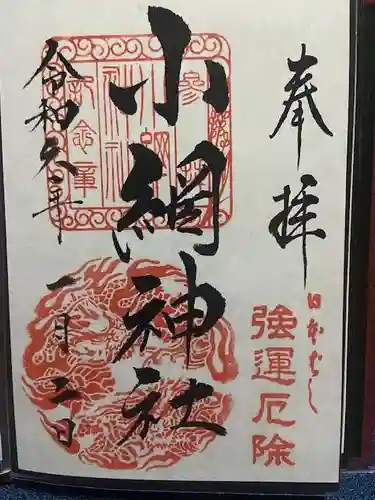 奉拝
日本ばし
強運厄除
小網神社
令和六年
一月二日